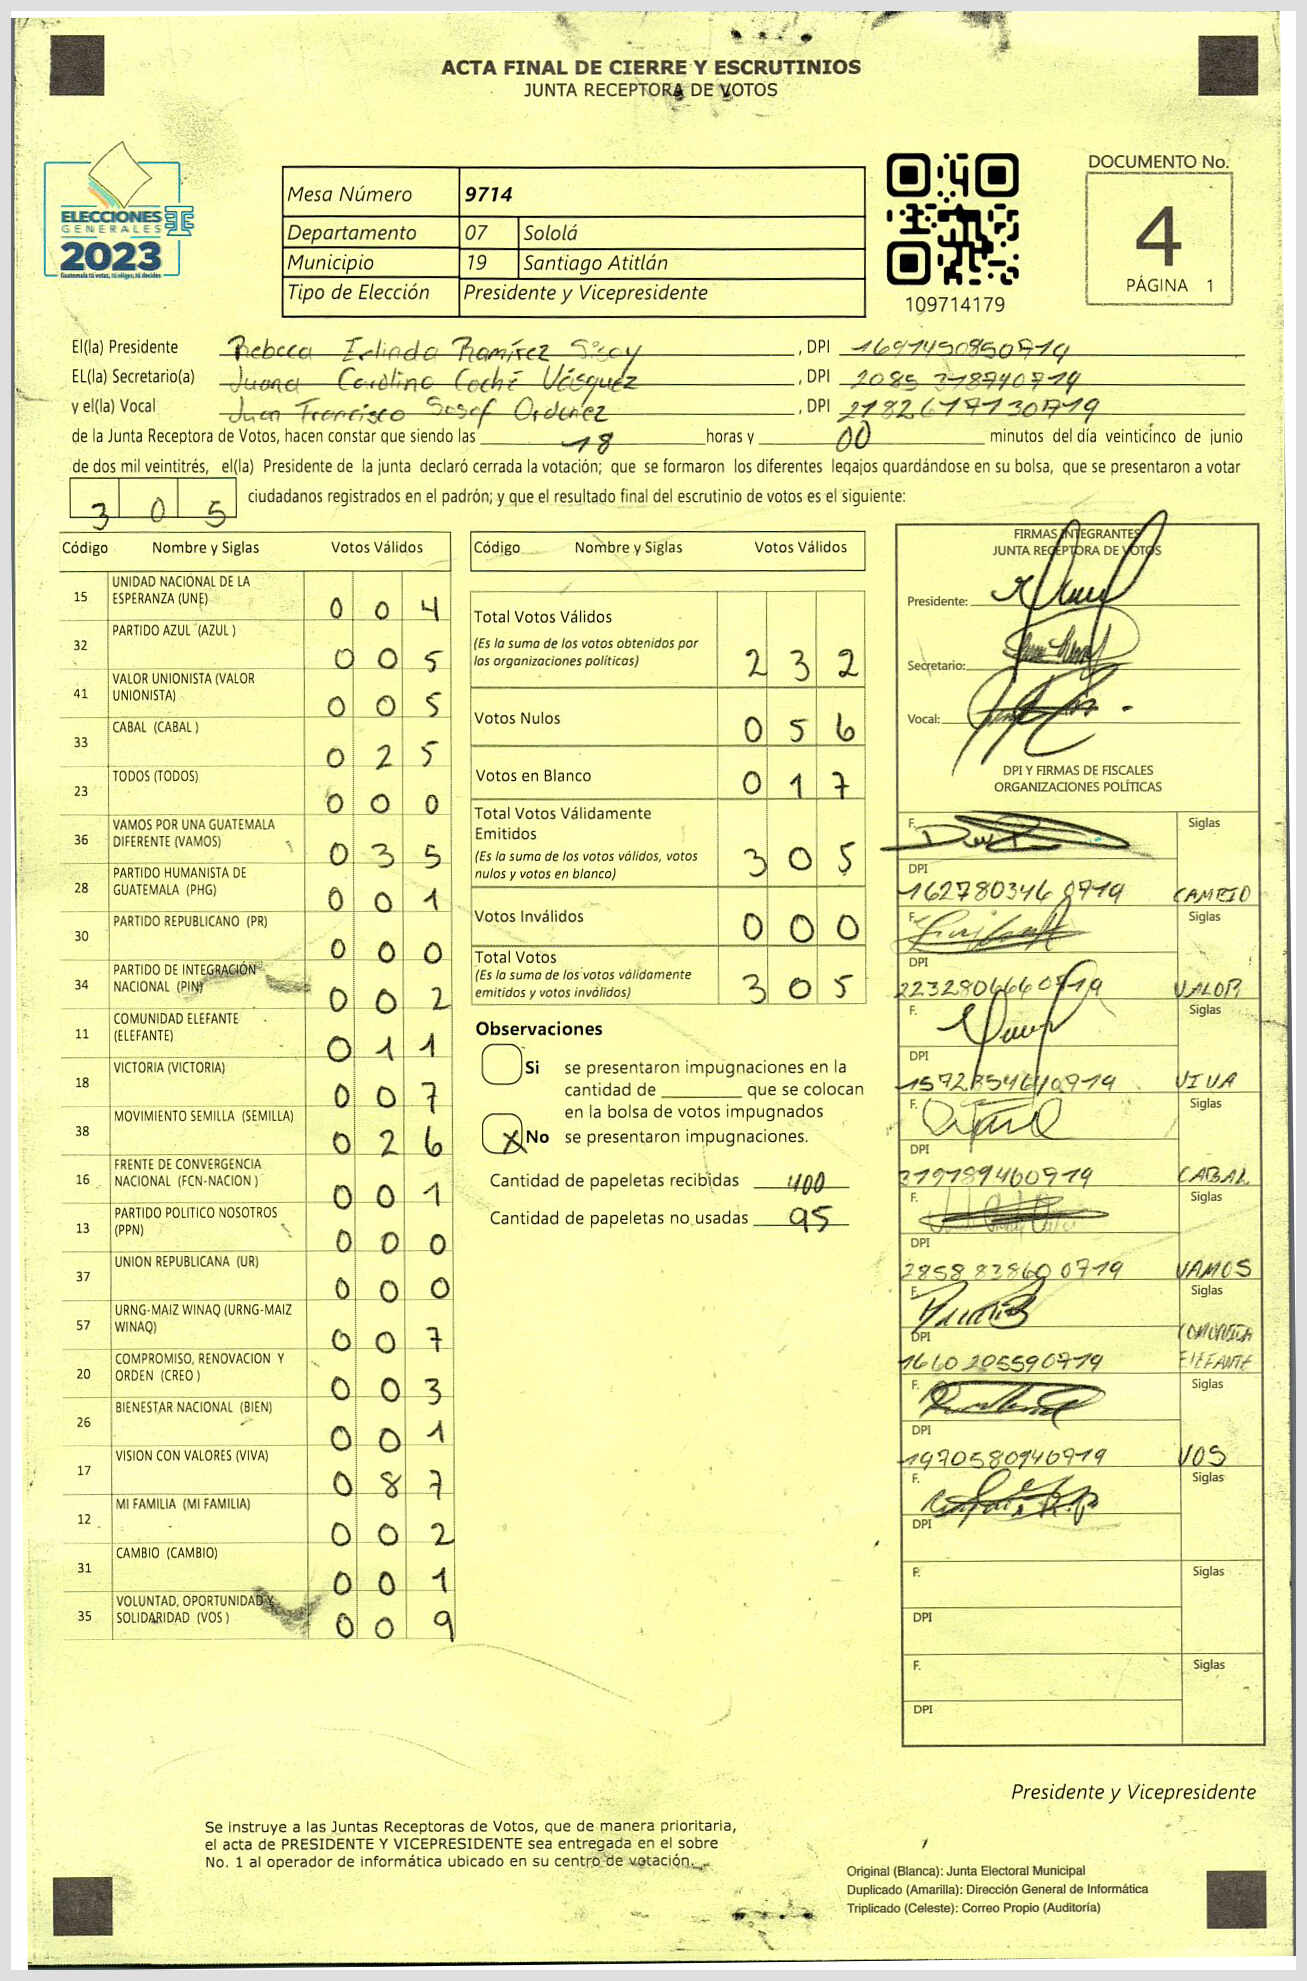 ACTA FINAL DE CIERRE Y ESCRUTINIOS
JUNTA RECEPTORA DE VOTOS
ELECCIONES
GENERALES
2023
Guatemala tú votas, tú eliges, tú decides
Mesa Número 9714
Departamento 07 Sololá
Municipio 19 Santiago Atitlán
Tipo de Elección Presidente y Vicepresidente
109714179
DOCUMENTO No.
4
PÁGINA 1
El(la) Presidente Rebeca Erlinda Ramírez Sisay , DPI 1691490850719
EL(la) Secretario(a) Juana Carolina Coché Vásquez , DPI 2085 318740719
y el(la) Vocal Juan Francisco Sosof Ordoñez , DPI 2182617130719
de la Junta Receptora de Votos, hacen constar que siendo las 18 horas y 00 minutos del día veinticinco de junio
de dos mil veintitrés, el(la) Presidente de la junta declaró cerrada la votación; que se formaron los diferentes legajos guardándose en su bolsa, que se presentaron a votar
305 ciudadanos registrados en el padrón; y que el resultado final del escrutinio de votos es el siguiente:
Código Nombre y Siglas Votos Válidos
15 UNIDAD NACIONAL DE LA ESPERANZA (UNE) 004
32 PARTIDO AZUL (AZUL ) 005
41 VALOR UNIONISTA (VALOR UNIONISTA) 005
33 CABAL (CABAL ) 025
23 TODOS (TODOS) 000
36 VAMOS POR UNA GUATEMALA DIFERENTE (VAMOS) 035
28 PARTIDO HUMANISTA DE GUATEMALA (PHG) 001
30 PARTIDO REPUBLICANO (PR) 000
34 PARTIDO DE INTEGRACIÓN NACIONAL (PIN) 002
11 COMUNIDAD ELEFANTE (ELEFANTE) 011
18 VICTORIA (VICTORIA) 007
38 MOVIMIENTO SEMILLA (SEMILLA) 026
16 FRENTE DE CONVERGENCIA NACIONAL (FCN-NACION ) 001
13 PARTIDO POLITICO NOSOTROS (PPN) 000
37 UNION REPUBLICANA (UR) 000
57 URNG-MAIZ WINAQ (URNG-MAIZ WINAQ) 007
20 COMPROMISO, RENOVACION Y ORDEN (CREO ) 003
26 BIENESTAR NACIONAL (BIEN) 001
17 VISION CON VALORES (VIVA) 087
12 MI FAMILIA (MI FAMILIA) 002
31 CAMBIO (CAMBIO) 001
35 VOLUNTAD, OPORTUNIDAD Y SOLIDARIDAD (VOS ) 009
Código Nombre y Siglas Votos Válidos
Total Votos Válidos 232
(Es la suma de los votos obtenidos por
las organizaciones políticas)
Votos Nulos 056
Votos en Blanco 017
Total Votos Válidamente
Emitidos 305
(Es la suma de los votos válidos, votos
nulos y votos en blanco)
Votos Inválidos 000
Total Votos 305
(Es la suma de los votos válidamente
emitidos y votos inválidos)
Observaciones
Si se presentaron impugnaciones en la
cantidad de ________ que se colocan
en la bolsa de votos impugnados
X No se presentaron impugnaciones.
Cantidad de papeletas recibidas 400
Cantidad de papeletas no usadas 95
FIRMAS INTEGRANTES
JUNTA RECEPTORA DE VOTOS
Presidente:
Secretario:
Vocal:
DPI Y FIRMAS DE FISCALES
ORGANIZACIONES POLÍTICAS
F. Siglas
DPI
162780346 0719 CAMBIO
F. Siglas
DPI
2232806660719 VALOR
F. Siglas
DPI
VIVA
F. Siglas
DPI
3797894600719 CABAL
F. Siglas
DPI
2858 83860 0719 VAMOS
F. Siglas
DPI
1660 205590719 ELEFANTE
F. Siglas
DPI
1970580940719 VOS
F. Siglas
DPI
F. Siglas
DPI
F. Siglas
DPI
Presidente y Vicepresidente
Se instruye a las Juntas Receptoras de Votos, que de manera prioritaria,
el acta de PRESIDENTE Y VICEPRESIDENTE sea entregada en el sobre
No. 1 al operador de informática ubicado en su centro de votación.
Original (Blanca): Junta Electoral Municipal
Duplicado (Amarilla): Dirección General de Informática
Triplicado (Celeste): Correo Propio (Auditoría)